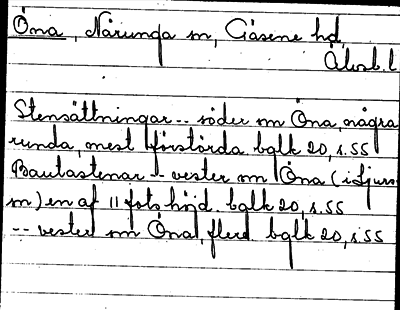 Öna, Nårunga sn, Gäsene hd,
Älvsb. l
Stensättningar -- söder om Öna, några
runda, mest förstörda bglk 20, s.55
Bautastenar -- vester om Öna (i Ljurs
sn) en af 11 fots höjd bglk 20, s.55
-- vester om Öna, flera bglk 20, s.55